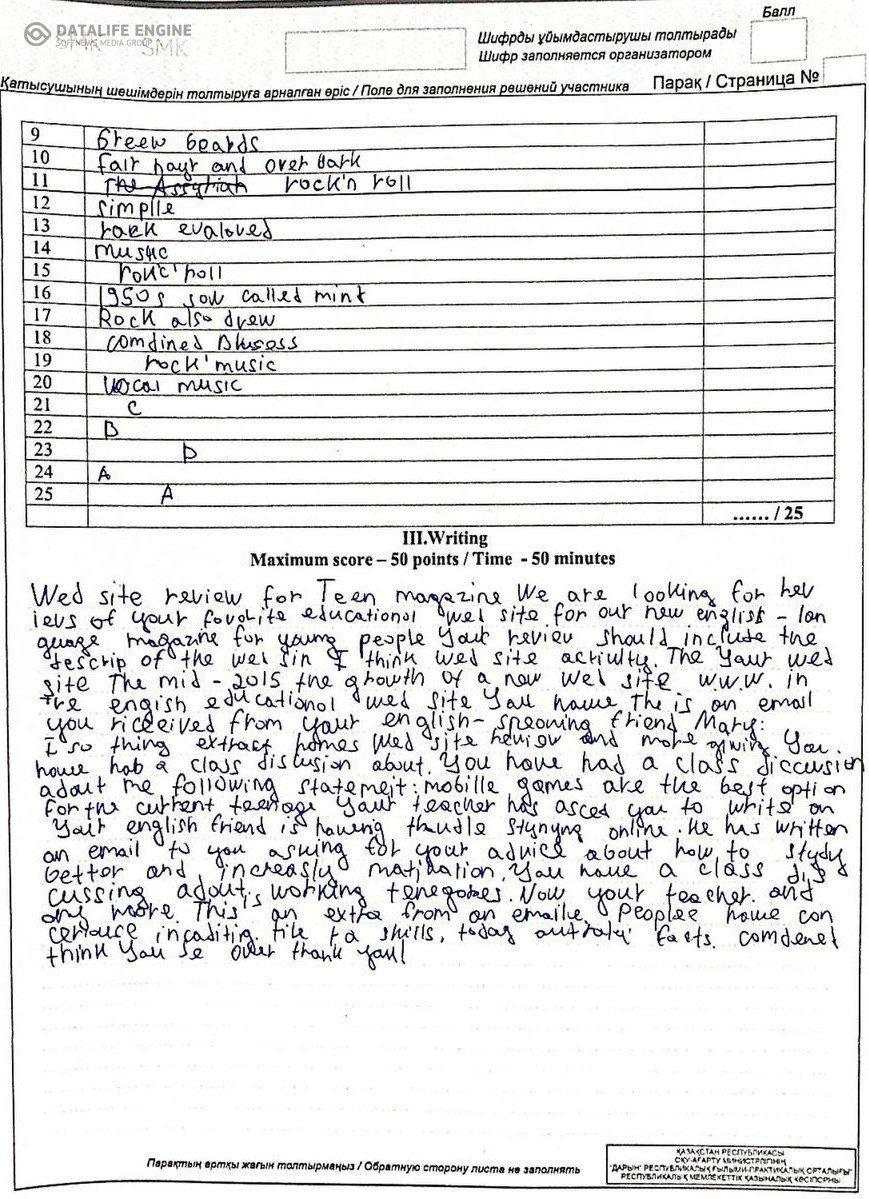 DATALIFE ENGINE
SOFTNEWS MEDIA GROUP
SMK
Балл
Шифрды ұйымдастырушы толтырады
Шифр заполняется организатором
Қатысушының шешімдерін толтыруға арналған өріс / Поле для заполнения решений участника
Парақ / Страница №
9 Greew beards
10 fair hayr and over Bark
11 The Assyrian rock'n roll
12 simplle
13 evaloved
14 music
15 roll
16 1950s sow called mint
17 Rock also drew
18 comdined
19 rock' music
20 vocal music
21 C
22 B
23 D
24 A
25 A
...... / 25
III.Writing
Maximum score – 50 points / Time - 50 minutes
Wed site review for Teen magazine We are looking for rev
iews of your favorite educational wed site for our new english - lan
guage magazine for young people Your review should include the
descrip of the wed sin I think wed site activity. The Your wed
site The mid - 2015 the growth of a now wed site w.w.w. in
the engish educational wed site You home The is an email
you riceeived from your english- speoning friend Mary:
I so thing extract homes Wed site review and more You.
home hob a class discusion about. You have had a class diccusion
adout me following statemeit: mobille games are the best option
for the current teenage Your teacher has asced you to write an
Your english friend is having online. He has written
an email to you asking for your advice about how to study
bettor and increasly You have a class dis
cussing adout is working Now your teacher and
any more. This an extra from an emaile. Peoplee home con
skills, today facts comdened
think You se over thank you!
Парақтың артқы жағын толтырмаңыз / Обратную сторону листа не заполнять
ҚАЗАҚСТАН РЕСПУБЛИКАСЫ
ОҚУ-АҒАРТУ МИНИСТРЛІГІНІҢ
"ДАРЫН" РЕСПУБЛИКАЛЫҚ ҒЫЛЫМИ-ПРАКТИКАЛЫҚ ОРТАЛЫҒЫ"
РЕСПУБЛИКАЛЫҚ МЕМЛЕКЕТТІК ҚАЗЫНАЛЫҚ КӘСІПОРНЫ